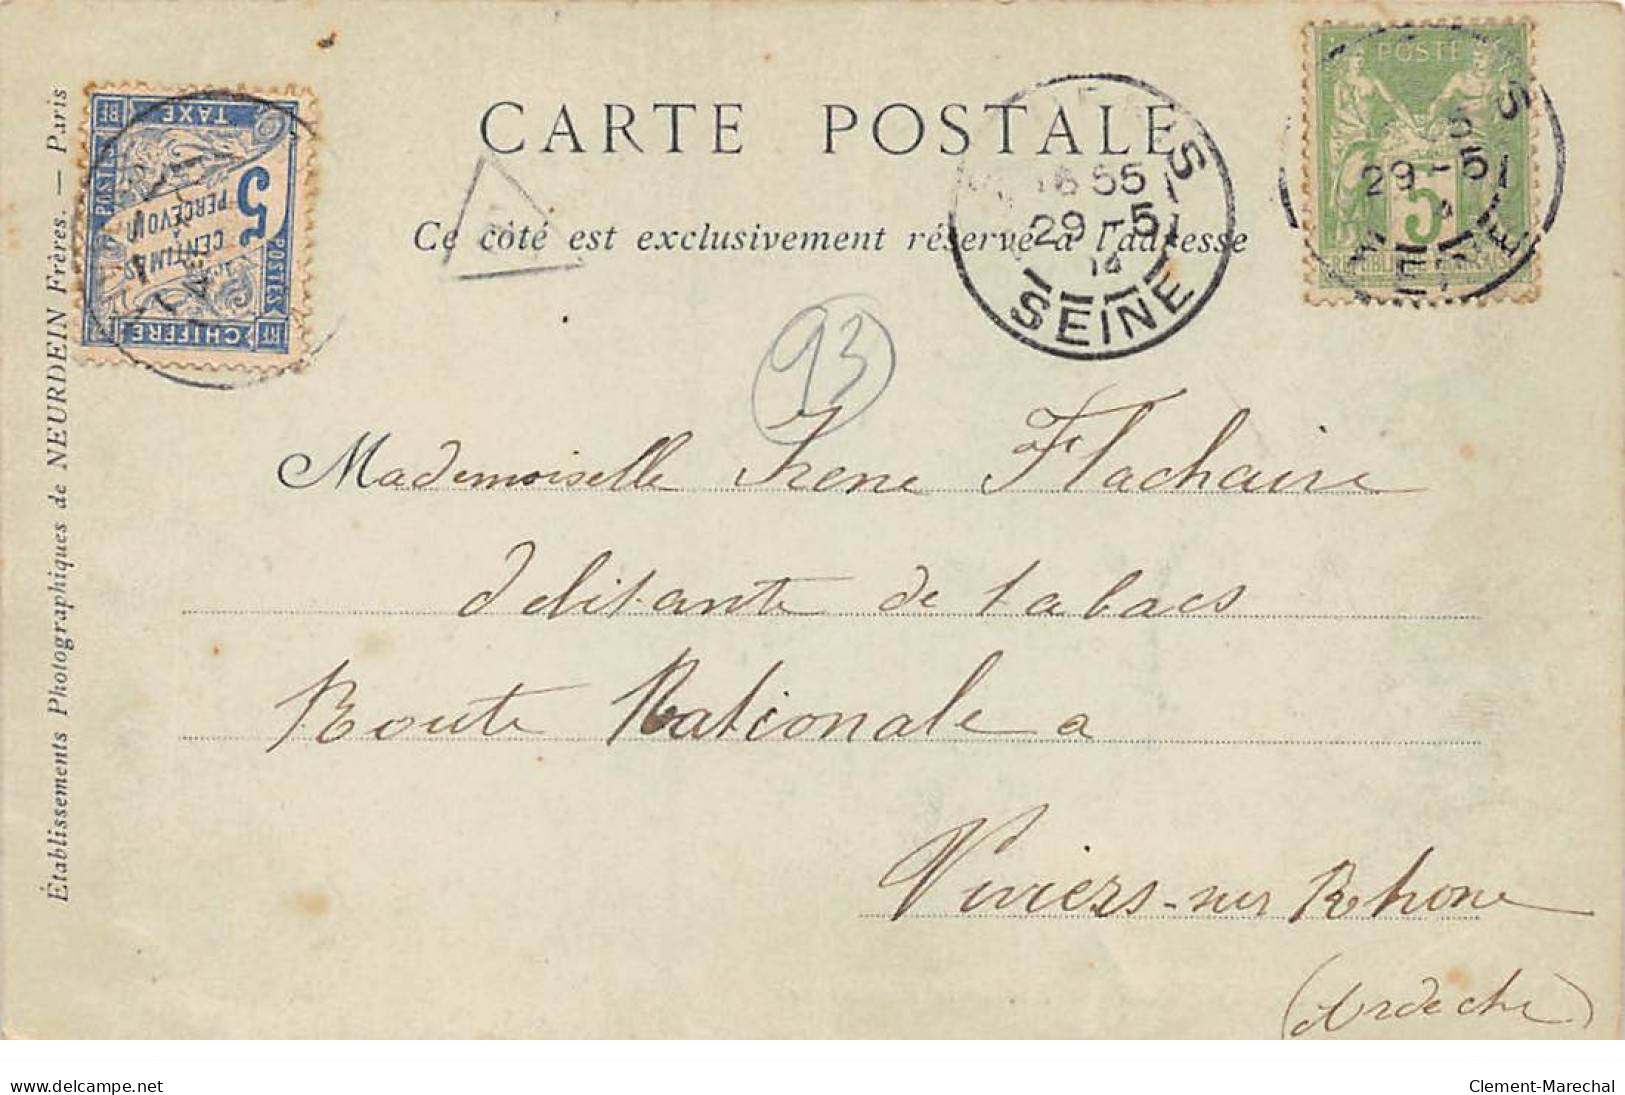 CARTE POSTALE
Ce côté est exclusivement réservé à l'adresse
Établissements Photographiques de NEURDEIN Frères. — Paris
POSTES
CHIFFRE
TAXE
POSTES
RF
5
CENTIMES
PERCEVOIR
55
29 - 5
14
SEINE
POSTE
5
29 - 5
93
Mademoiselle Irene Flachaire
debitante de tabacs
Route Nationale a
Viviers-sur Rhone
(Ardeche)
delcampe.net
Clement-Marechal